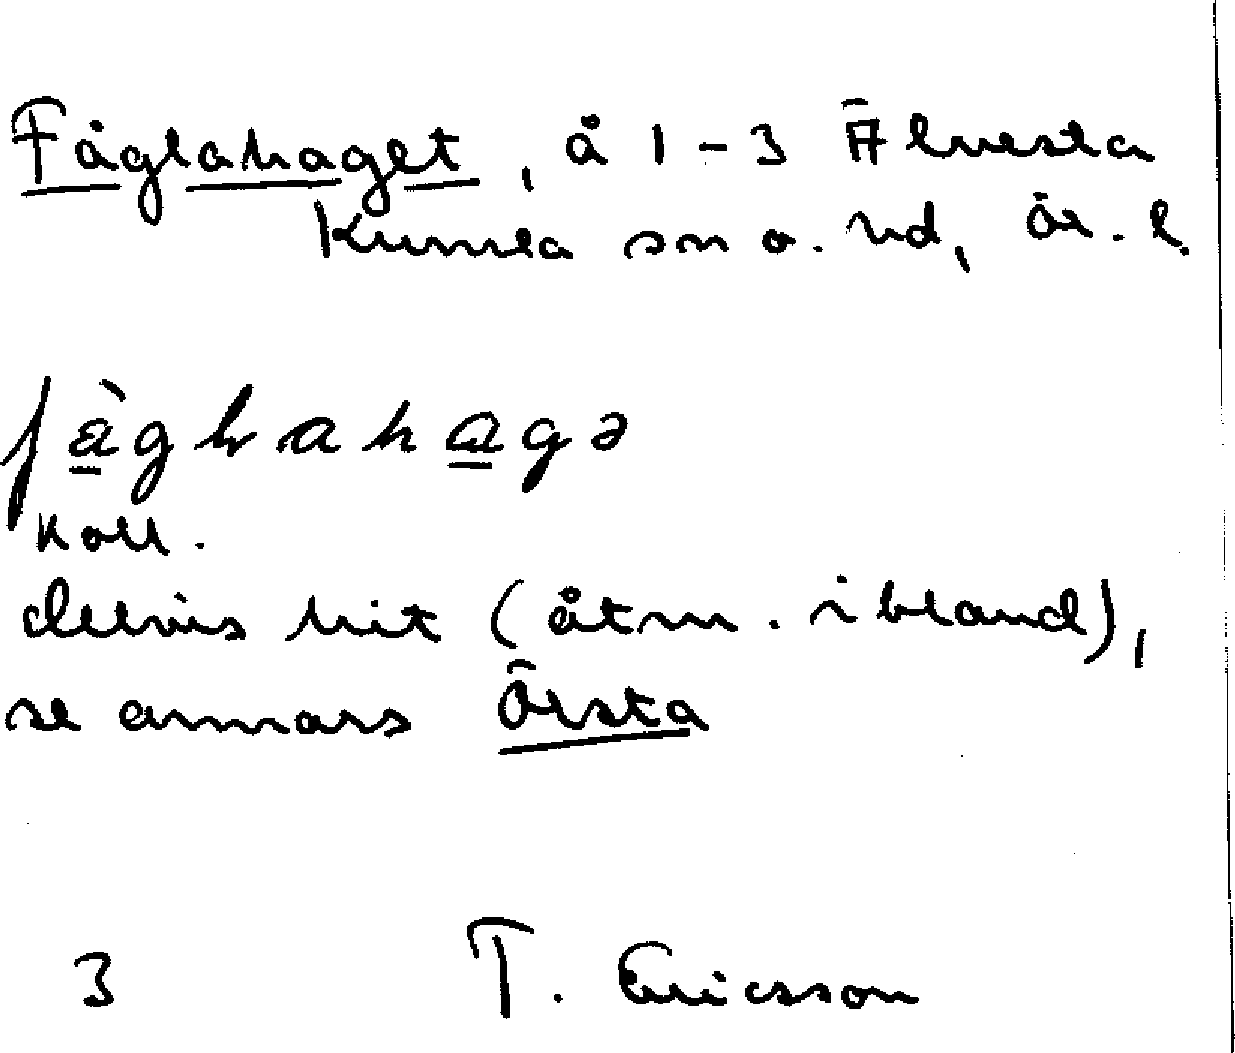 Fåglahaget, å 1-3 Älvesta
Kumla sn o. hd, Ör. l.
få̀glahagə
koll.
delvis hit (åtm. ibland),
se annars Örsta
3 T. Ericsson